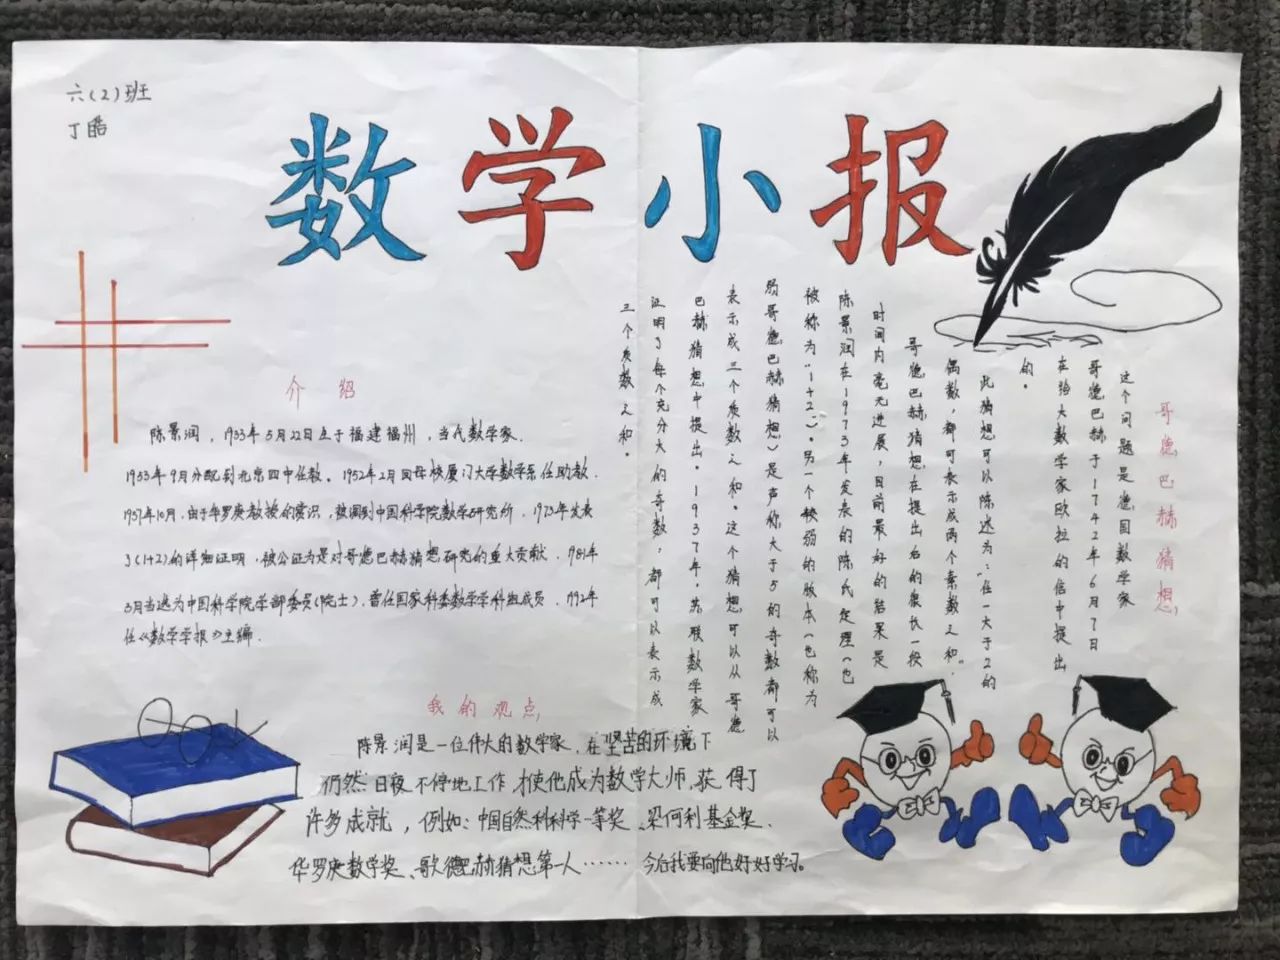 六(2)班
丁皓
数学小报
介绍
陈景润，1933年5月22日生于福建福州，当代数学家．
1953年9月分配到北京四中任教。1952年2月回母校厦门大学数学系任助教．
1957年10月，由于华罗庚教授的赏识，被调到中国科学院数学研究所．1973年发表
了(1+2)的详细证明，被公证为是对哥德巴赫猜想研究的重大贡献．1981年
3月当选为中国科学院学部委员(院士)．曾任国家科委数学学科组成员．1992年
任《数学学报》主编．
哥德巴赫猜想，
这个问题是德国数学家
哥德巴赫于1742年6月7日
在给大数学家欧拉的信中提出
的．
此猜想可以陈述为：“任一大于2的
偶数，都可表示成两个素数之和。”
哥德巴赫猜想在提出后的很长一段
时间内毫无进展，目前最好的结果是
陈景润在1973年发表的陈氏定理(也
被称为“1+2)。另一个较弱的版本(也称为
弱哥德巴赫猜想)是声称大于5的奇数都可以
表示成三个质数之和。这个猜想可以从哥德
巴赫猜想中提出．1937年．苏联数学家
证明了每个充分大的奇数，都可以表示成
三个质数之和．
我的观点，
陈景润是一位伟大的数学家，在坚苦的环境下
仍然日夜不停地工作，才使他成为数学大师，获得了
许多成就，例如：中国自然科科学一等奖、梁何利基金奖、
华罗庚数学奖、歌德巴赫猜想第一人……今后我要向他好好学习。